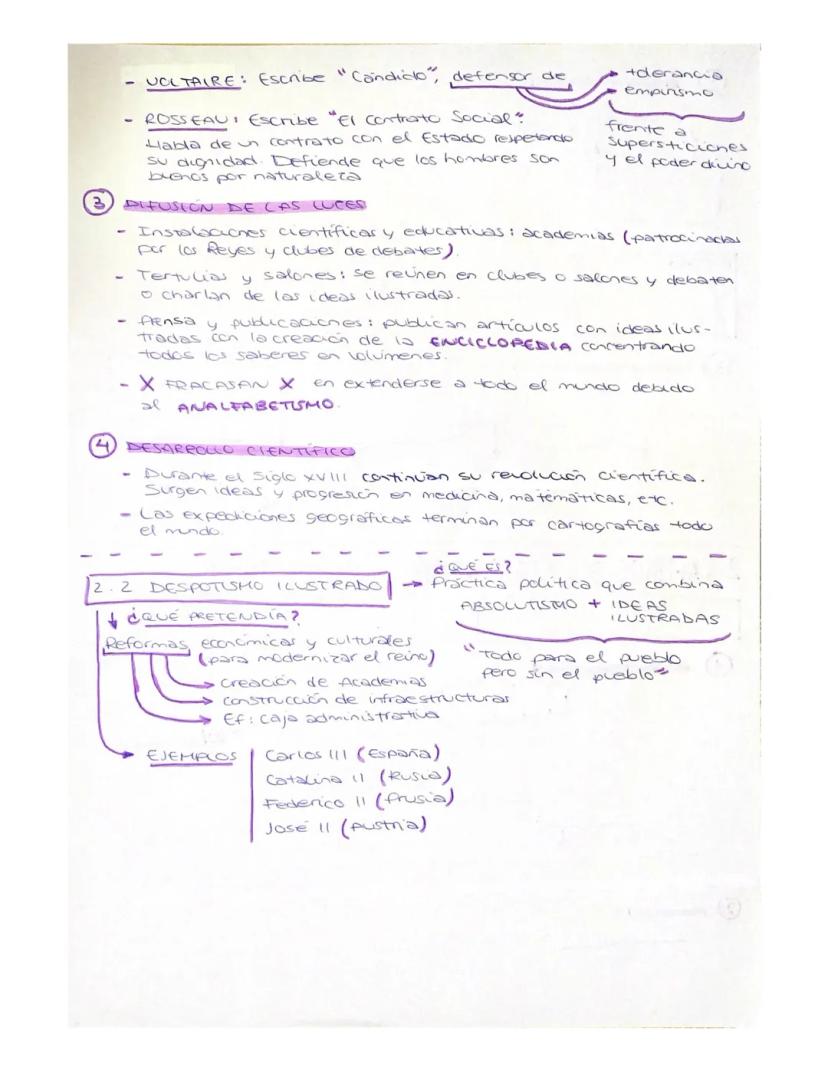 - VOLTAIRE: Escribe "Cándido", defensor de
tolerancia
empirismo
frente a
supersticiones
y el poder divino
- ROSSEAU: Escribe "El contrato Social".
Habla de un contrato con el Estado respetando
su dignidad. Defiende que los hombres son
buenos por naturaleza
3 DIFUSIÓN DE LAS LUCES
- Instalaciones científicas y educativas: academias (patrocinadas
por los Reyes y clubes de debates).
- Tertulias y salones: se reúnen en clubes o salones y debaten
o charlan de las ideas ilustradas.
- Prensa y publicaciones: publican artículos con ideas ilus-
tradas con la creación de la ENCICLOPEDIA concentrando
todos los saberes en volúmenes.
- X FRACASAN X en extenderse a todo el mundo debido
al ANALFABETISMO.
4 DESARROLLO CIENTÍFICO
- Durante el Siglo XVIII continúan su revolución científica.
Surgen ideas y progresión en medicina, matemáticas, etc.
- Las expediciones geográficas terminan por cartografías todo
el mundo.
2.2 DESPOTISMO ILUSTRADO → ¿QUÉ ES?
Práctica política que combina
ABSOLUTISMO + IDEAS
ILUSTRADAS
"Todo para el pueblo
pero sin el pueblo"
↓ ¿QUÉ PRETENDÍA?
Reformas económicas y culturales
(para modernizar el reino)
creación de Academias
construcción de infraestructuras
Ef: caja administrativa
EJEMPLOS
Carlos III (España)
Catalina II (Rusia)
Federico II (Prusia)
José II (Austria)